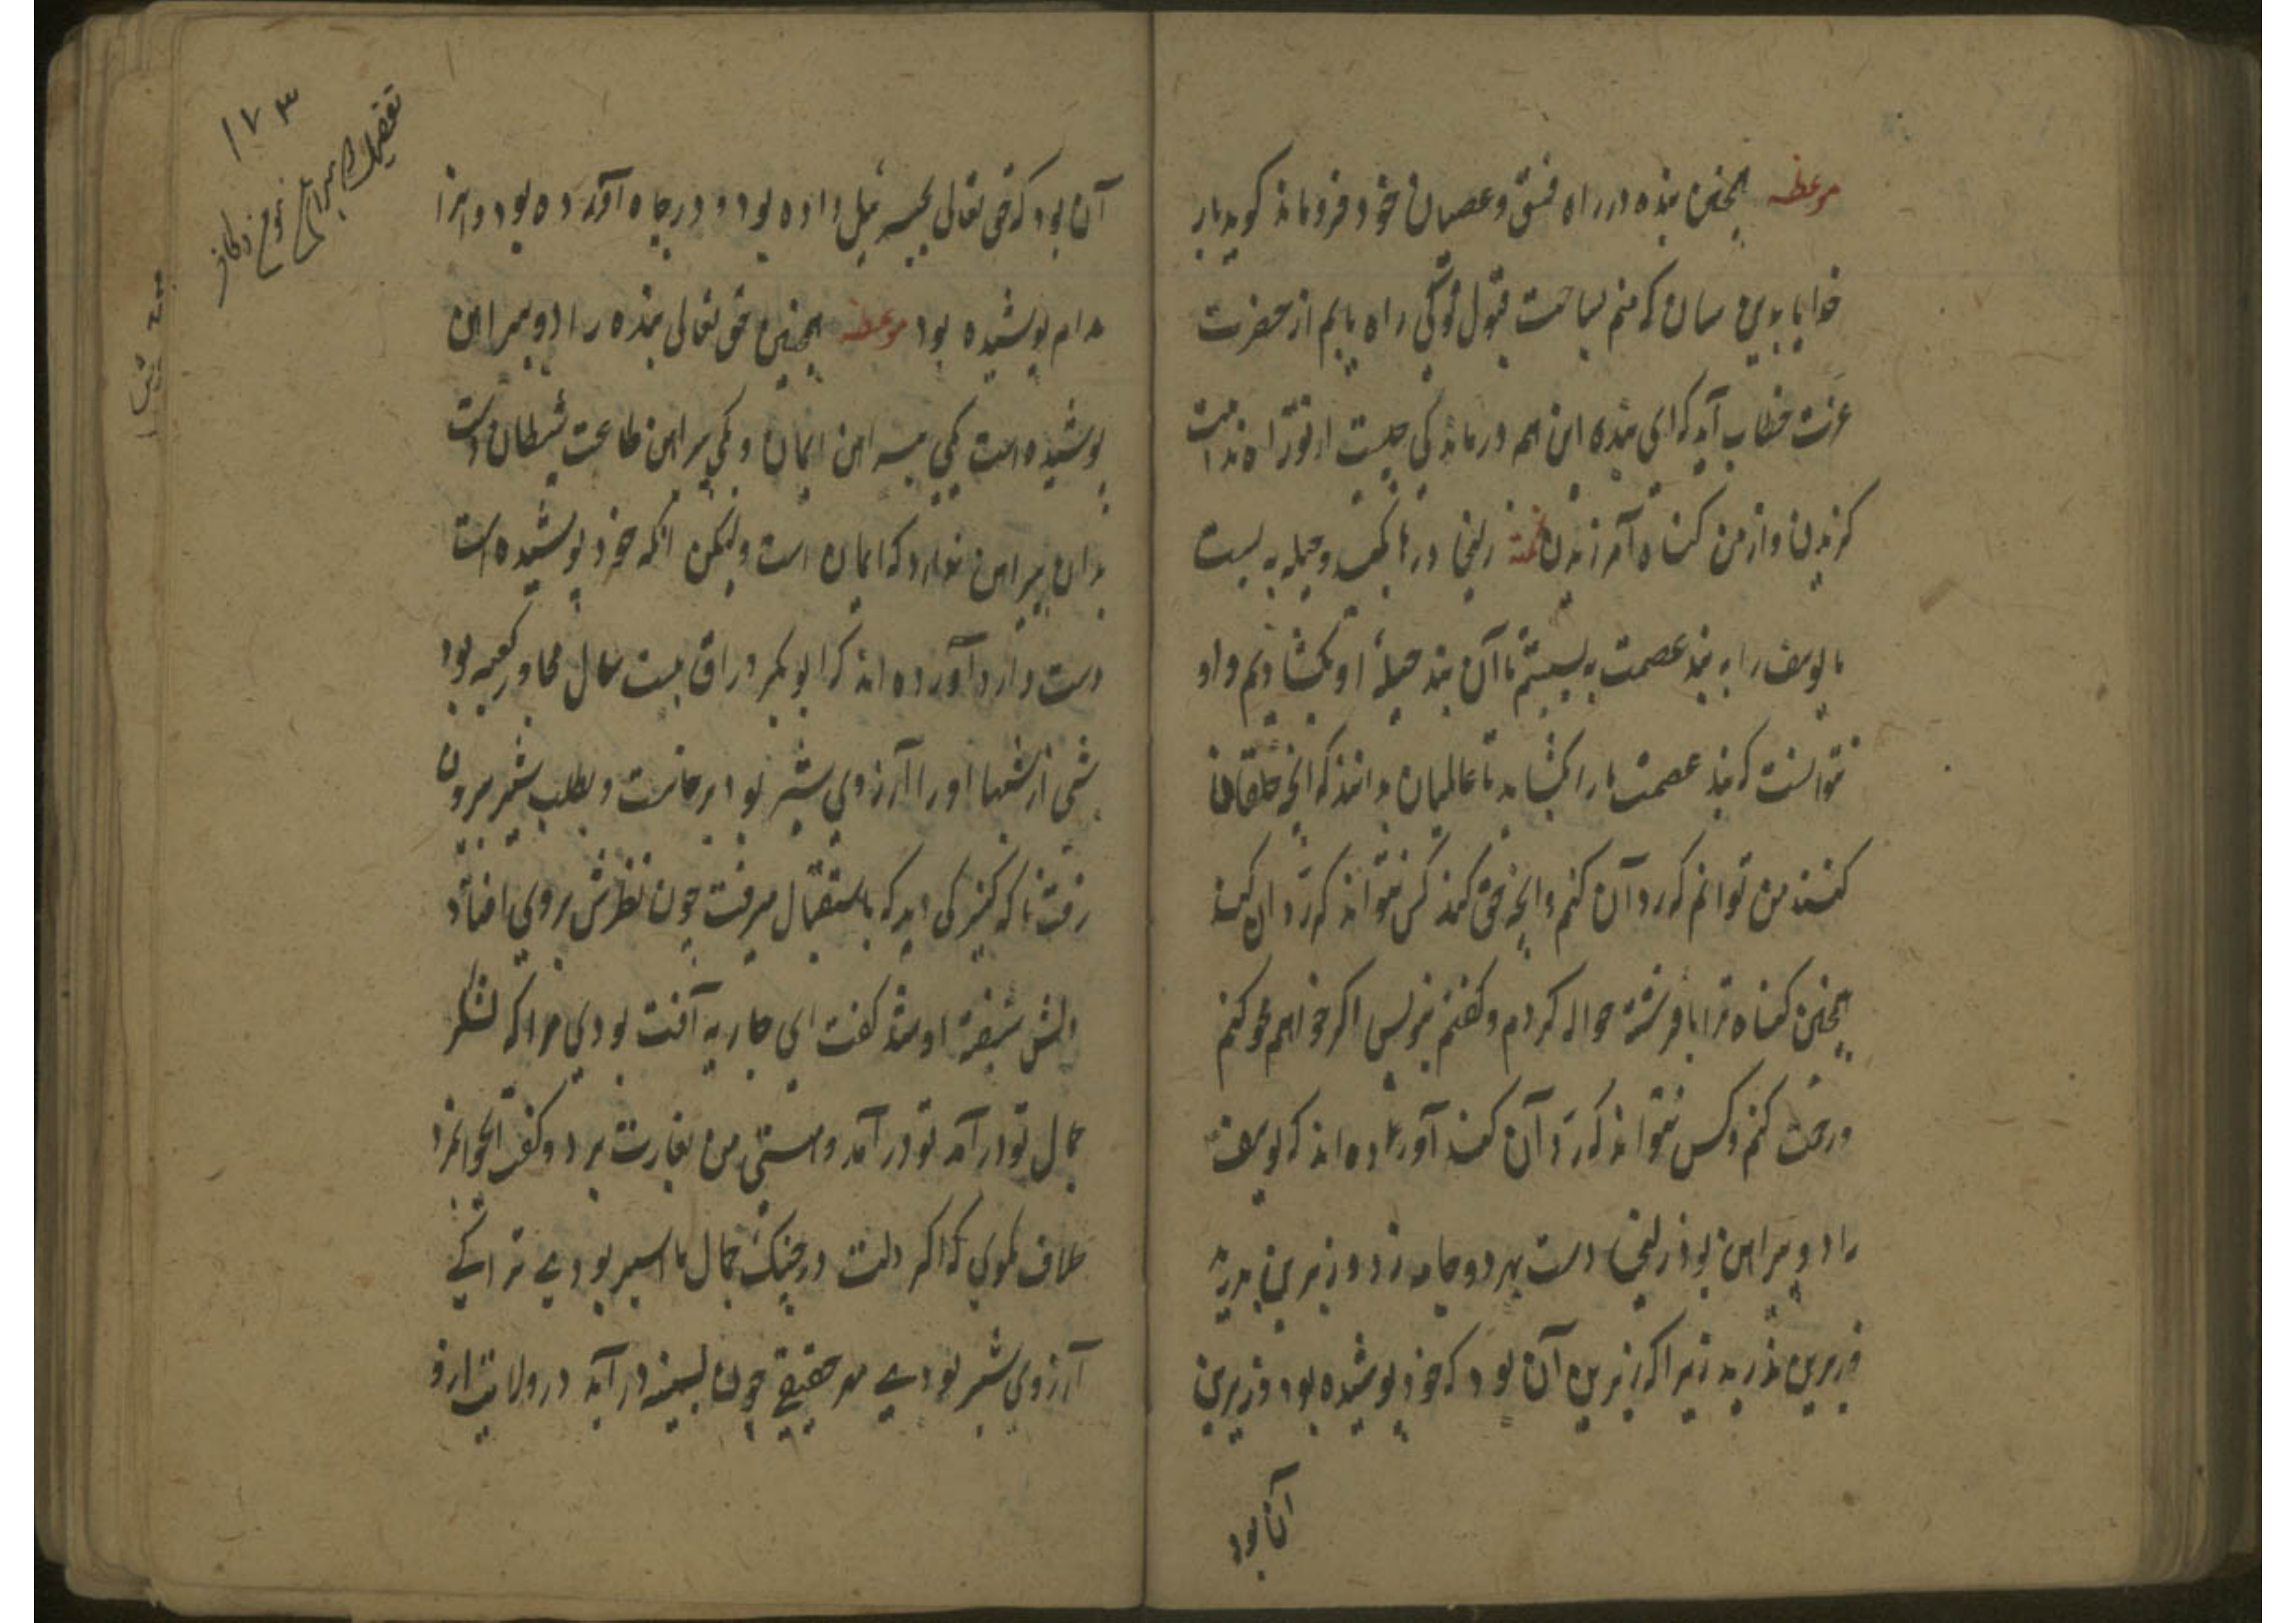 موعظه همچنین بنده در راه فسق و عصیان خود فروماند گوید بار
خدایا بدین سان که منم بساحت قبول تو کی راه یابم از حضرت
عزت خطاب آید که ای بنده این همه درماندگی چیست از تو راه ندامت
گزیدن و از من گناه آمرزیدن نکته زلیخا درها بکید و حیله به بست
ما یوسف را به بند عصمت به بستیم تا آن بند حیلهٔ او بگشادیم و او
نتوانست که بند عصمت ما را بگشاید تا عالمیان بدانند که آنچه خلقان
کنند من توانم که رد آن کنم و آنچه حق کند کس نتواند که رد آن کند
همچنین گناه ترا با فرشته حواله کردم و گفتم بنویس اگر خواهم محو کنم
و رحمت کنم و کس نتواند که رد آن کند آورده اند که یوسف
را دو پیراهن بود زلیخا دست بهر دو جامه زد و زبرین بدرید
و زیرین ندرید زیرا که زبرین آن بود که خود پوشیده بود و زیرین
آن بود
آن بود که حق تعالی بجبرئیل داده بود و در چاه آورده بود و او را
مدام پوشیده بود موعظه همچنین حق تعالی بنده را دو پیراهن
پوشیده است یکی پیراهن ایمان و یکی پیراهن طاعت شیطان دست
بدان پیراهن ندارد که ایمان است ولیکن آنکه خود پوشیده است
دست دارد آورده اند که ابوبکر وراق بیست سال مجاور کعبه بود
شبی از شبها او را آرزوی شیر بود برخاست و بطلب شیر بیرون
رفت ناگه کنیزکی دید که باستقبال میرفت چون نظرش بروی افتاد
دلش شیفتهٔ او شد گفت ای جاریه آفت بودی مرا که لشکر
جمال تو درآمد تو درآمد و هستی من بغارت برد و گفت ای جوانمرد
لاف مگوی که اگر دلت در چنگ جمال ما اسیر بودے ترا کے
آرزوی شیر بودے مهر حقیقے چون بسینه درآید در ولایت ارزو
۱۷۳